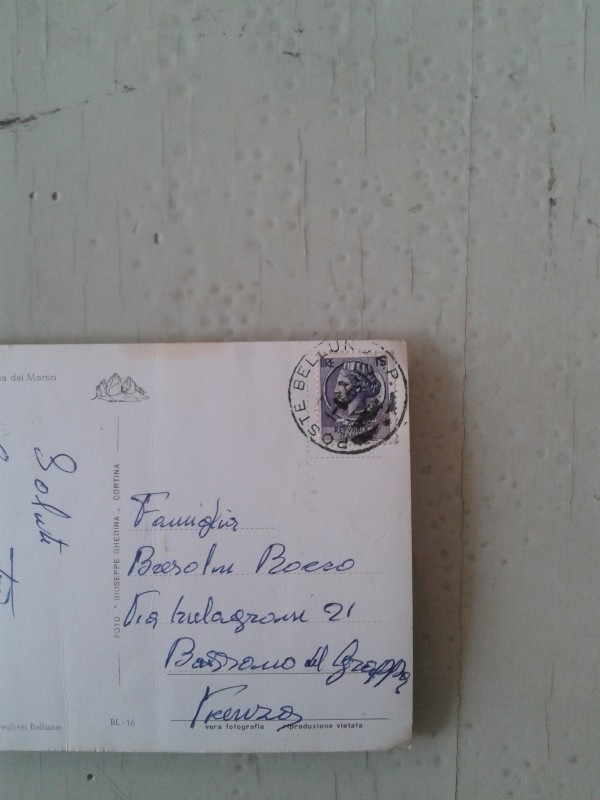 za dei Martiri
POSTE BELLUNO A.P.
LIRE 15
Saluti
FOTO "GIUSEPPE GHEDINA - CORTINA
Famiglia
Bresolin Rocco
Via Melagrani 21
Bassano del Grappa
Vicenza
Belluno
BL-16
vera fotografia riproduzione vietata